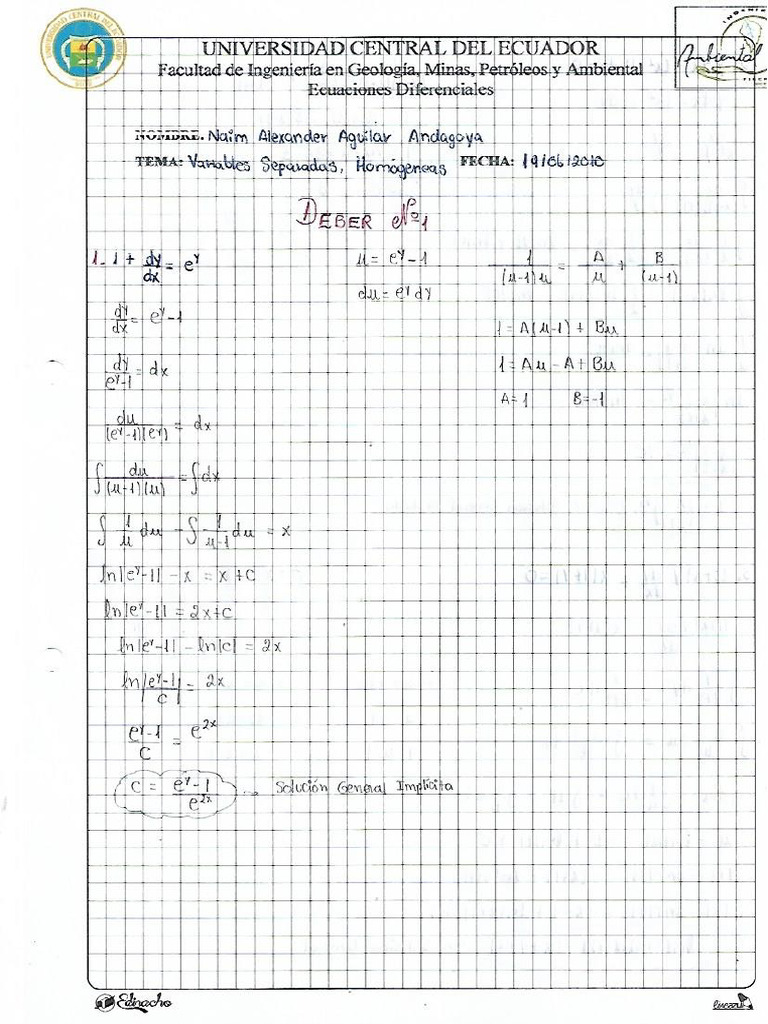 UNIVERSIDAD CENTRAL DEL ECUADOR
Facultad de Ingeniería en Geología, Minas, Petróleos y Ambiental
Ecuaciones Diferenciales
Ambiental
NOMBRE. Naim Alexander Aguilar Andagoya
TEMA: Variables Separadas, Homógeneas FECHA: 19/06/2010
DEBER Nº1
1.- 1 + dy/dx = e^y
dy/dx = e^y - 1
dy/(e^y-1) = dx
du/((e^y-1)(e^y)) = dx
∫ du/((u-1)(u)) = ∫dx
∫ 1/u du - ∫ 1/(u-1) du = x
ln|e^y-1| - x = x + c
ln|e^y-1| = 2x+c
ln|e^y-1| - ln|c| = 2x
ln|(e^y-1)/c| = 2x
(e^y-1)/c = e^2x
c = (e^y-1)/e^2x → Solución General Implícita
u = e^y - 1
du = e^y dy
1/((u-1)u) = A/u + B/(u-1)
1 = A(u-1) + Bu
1 = Au - A + Bu
A=1 B=-1
Edinacho